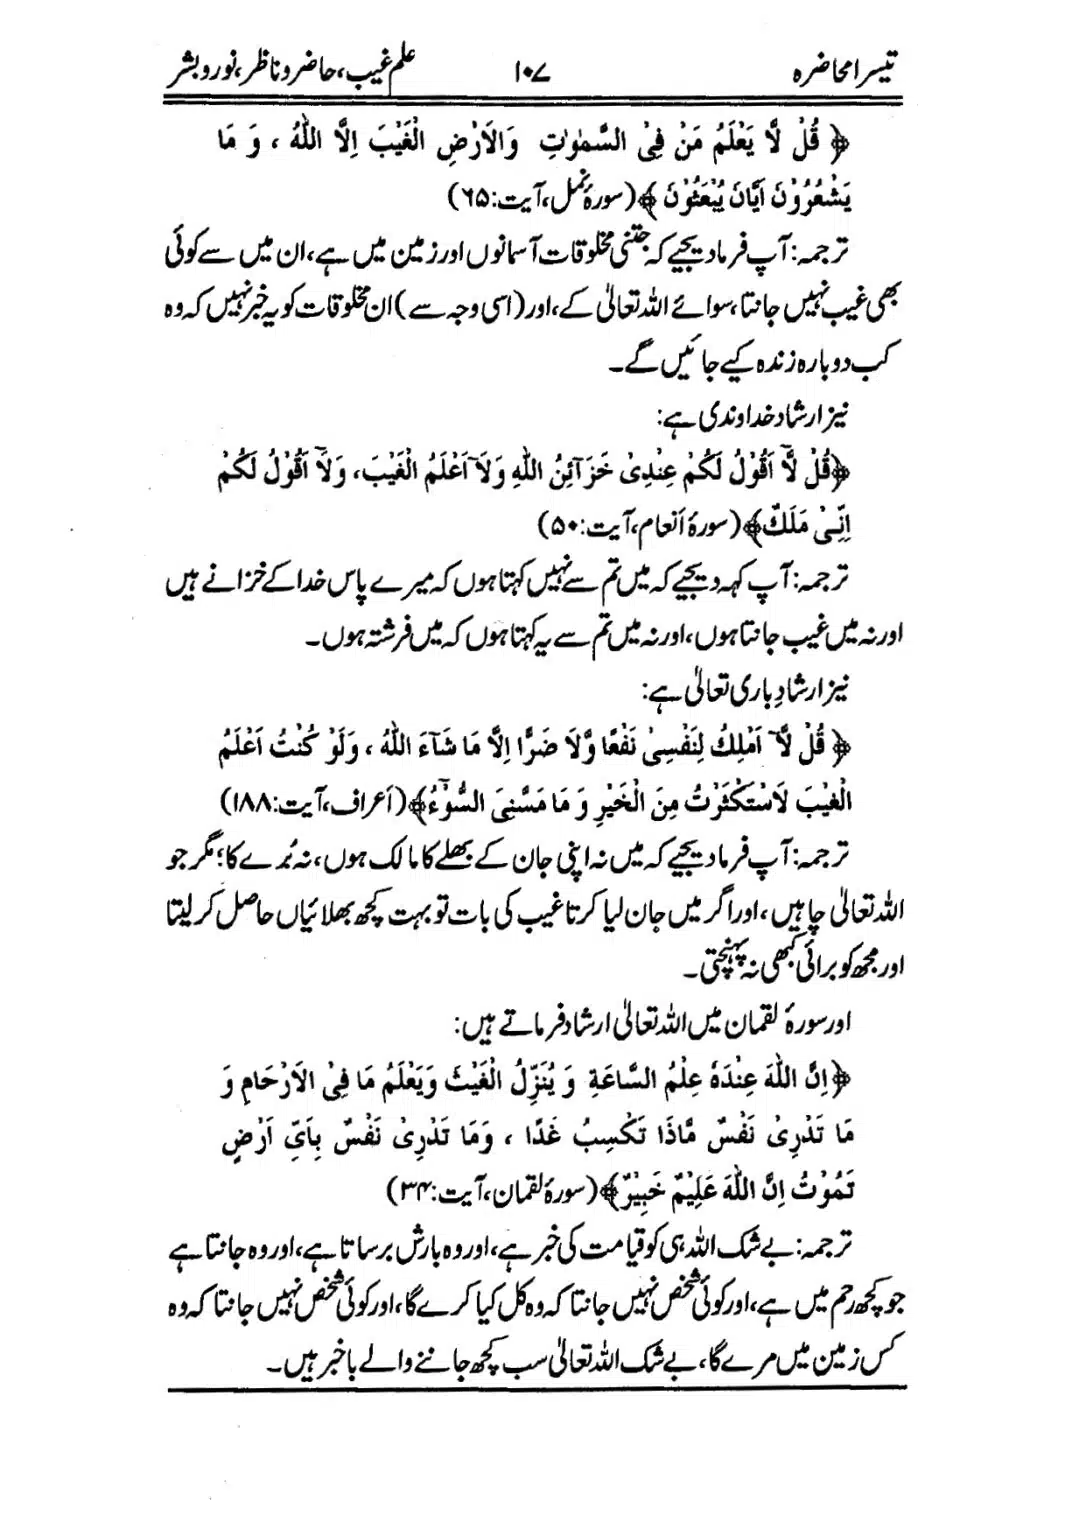 تیسرا محاضرہ ۱۰۷ علم غیب، حاضر و ناظر، نور و بشر
﴿ قُلْ لَّا یَعْلَمُ مَنْ فِیْ السَّمٰوٰتِ وَالْاَرْضِ الْغَیْبَ اِلَّا اللّٰہُ ، وَ مَا
یَشْعُرُوْنَ اَیَّانَ یُبْعَثُوْنَ ﴾ (سورۂ نمل، آیت:۶۵)
ترجمہ: آپ فرما دیجیے کہ جتنی مخلوقات آسمانوں اور زمین میں ہے، ان میں سے کوئی
بھی غیب نہیں جانتا، سوائے اللہ تعالیٰ کے، اور (اسی وجہ سے) ان مخلوقات کو یہ خبر نہیں کہ وہ
کب دوبارہ زندہ کیے جائیں گے۔
نیز ارشاد خداوندی ہے:
﴿قُلْ لَّا اَقُوْلُ لَکُمْ عِنْدِیْ خَزَآئِنُ اللّٰہِ وَلَآ اَعْلَمُ الْغَیْبَ، وَلَآ اَقُوْلُ لَکُمْ
اِنِّیْ مَلَکٌ﴾ (سورۂ اَنعام، آیت:۵۰)
ترجمہ: آپ کہہ دیجیے کہ میں تم سے نہیں کہتا ہوں کہ میرے پاس خدا کے خزانے ہیں
اور نہ میں غیب جانتا ہوں، اور نہ میں تم سے یہ کہتا ہوں کہ میں فرشتہ ہوں۔
نیز ارشادِ باری تعالیٰ ہے:
﴿ قُلْ لَّآ اَمْلِکُ لِنَفْسِیْ نَفْعًا وَّلَا ضَرًّا اِلَّا مَا شَآءَ اللّٰہُ ، وَلَوْ کُنْتُ اَعْلَمُ
الْغَیْبَ لَاسْتَکْثَرْتُ مِنَ الْخَیْرِ وَ مَا مَسَّنِیَ السُّوْٓءُ﴾ (اَعراف، آیت:۱۸۸)
ترجمہ: آپ فرما دیجیے کہ میں نہ اپنی جان کے بھلے کا مالک ہوں، نہ بُرے کا؛ مگر جو
اللہ تعالیٰ چاہیں، اور اگر میں جان لیا کرتا غیب کی بات تو بہت کچھ بھلائیاں حاصل کر لیتا
اور مجھ کو برائی کبھی نہ پہنچتی۔
اور سورۂ لقمان میں اللہ تعالیٰ ارشاد فرماتے ہیں:
﴿اِنَّ اللّٰہَ عِنْدَہٗ عِلْمُ السَّاعَۃِ وَ یُنَزِّلُ الْغَیْثَ وَیَعْلَمُ مَا فِیْ الْاَرْحَامِ وَ
مَا تَدْرِیْ نَفْسٌ مَّاذَا تَکْسِبُ غَدًا ، وَمَا تَدْرِیْ نَفْسٌ بِاَیِّ اَرْضٍ
تَمُوْتُ اِنَّ اللّٰہَ عَلِیْمٌ خَبِیْرٌ﴾ (سورۂ لقمان، آیت:۳۴)
ترجمہ: بے شک اللہ ہی کو قیامت کی خبر ہے، اور وہ بارش برساتا ہے، اور وہ جانتا ہے
جو کچھ رحم میں ہے، اور کوئی شخص نہیں جانتا کہ وہ کل کیا کرے گا، اور کوئی شخص نہیں جانتا کہ وہ
کس زمین میں مرے گا، بے شک اللہ تعالیٰ سب کچھ جاننے والے باخبر ہیں۔